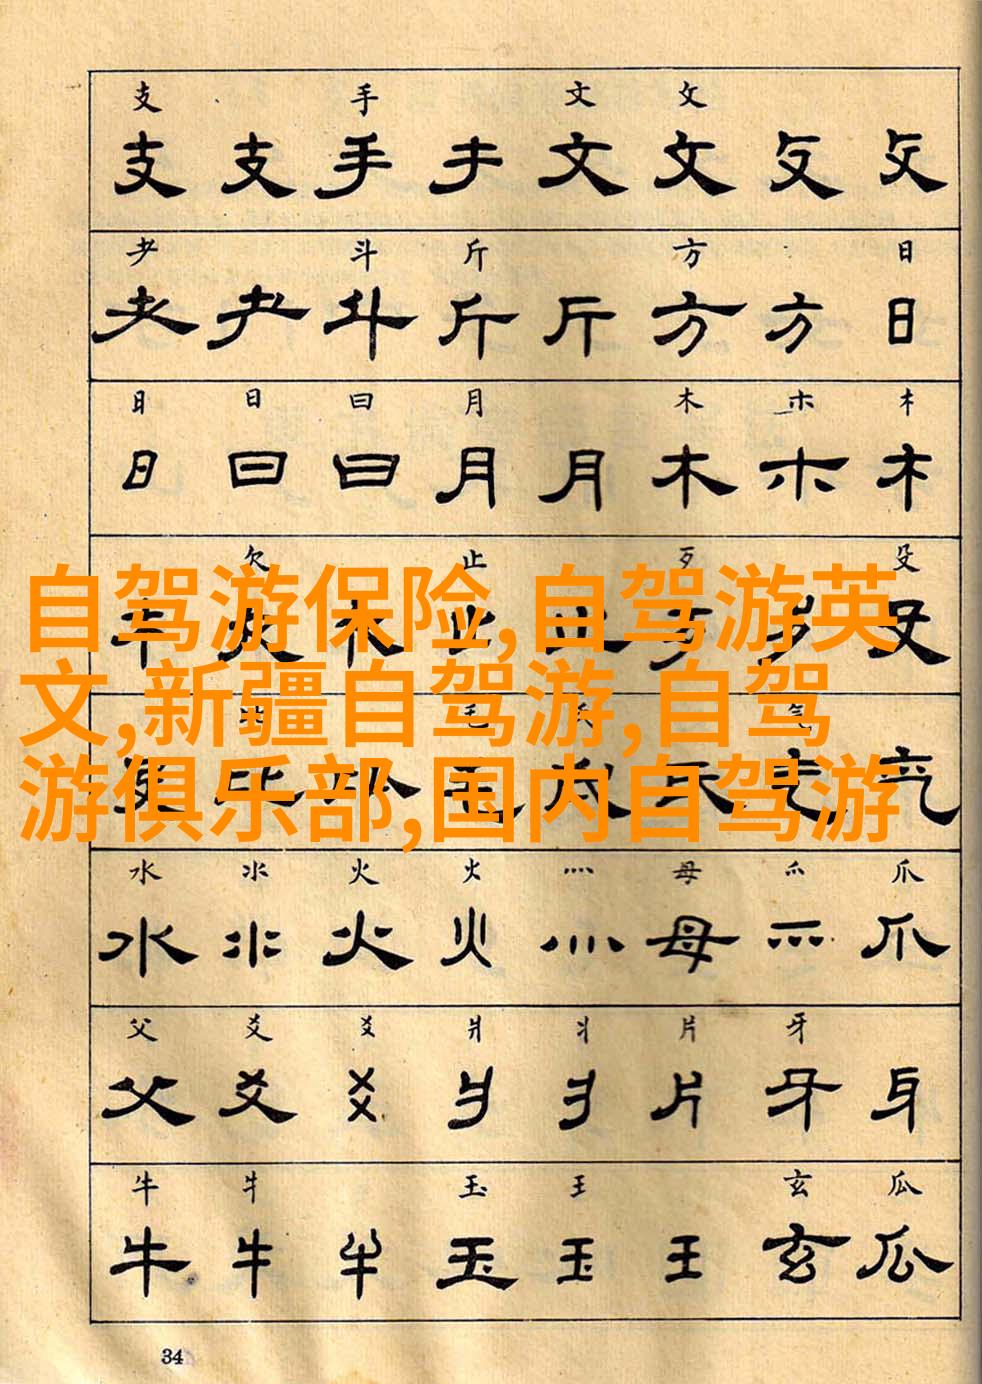 支 手 文 攵
支 支 手 手 文 攵 攵 攵
耂 斗 斤 方 日
耂 耂 斗 斤 斤 方 方 日
日 日 曰 月 木 朩 木
日 曰 曰 月 月 木 朩 木
欠 止 歹 殳
自驾游保险,自驾游英
文,新疆自驾游,自驾
游俱乐部,国内自驾游
水 氺 火 火 灬 母 爫 爪
水 氺 火 火 灬 母 爫 爪
父 爻 爻 爿 丬 片 牙
父 爻 爻 爿 丬 片 牙 牙
牛 牜 玉 王 玄 瓜
牛 牜 牛 玉 玉 王 玄 瓜
34